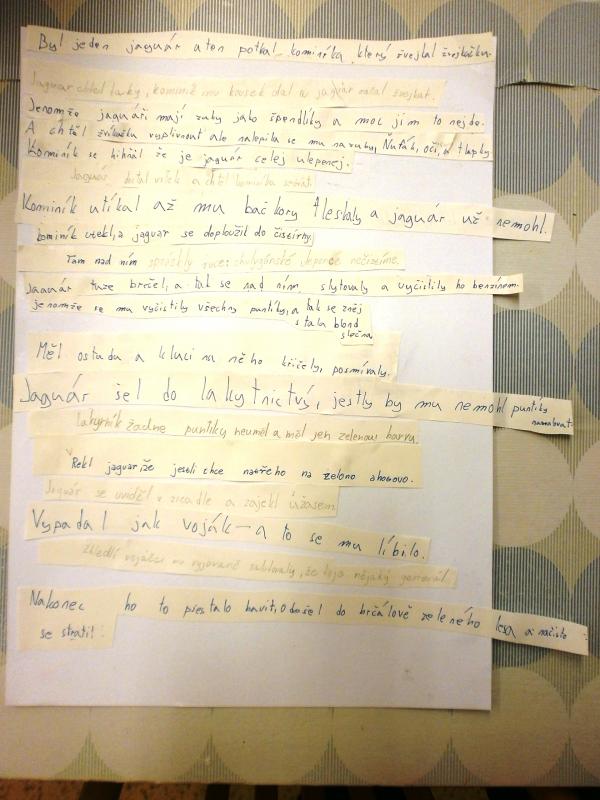 Byl jeden jaguár a ten potkal kominíka, který žvejkal žvejkačku.
Jaguar chtěl taky, kominík mu kousek dal a jaguár začal žvejkat.
Jenomže jaguáři mají zuby jako špendlíky a moc jim to nejde.
A chtěl žvíkačku vyplivnout ale nalepila se mu na zuby, Ňufák, oči, a tlapky
Kominík se hihňal že je jaguár celej ulepenej.
Jaguár vztek a chtěl kominíka sežrat.
Kominík utíkal až mu bačkory tleskaly a jaguár už nemohl.
kominík utekl, a jaguar se doploužil do čistírny.
Tam nad ním nečistíme.
Jaguár tuze brečel, a tak se nad ním slytovaly a vyčistily ho benzínem.
jenomže se mu vyčistily všechny puntíky, a tak se zněj
stala blond
slečna
Měl ostudu a kluci na něho křičely, posmívaly.
Jaguár šel do lakytnictvý, jestly by mu nemohl puntíky
namalovat.
lakyrník žádné puntíky neuměl a měl jen zelenou barvu.
Řekl jaguarovi že jestli chce natřeho na zeleno
Jaguár se uviděl v zrcadle a zajekl úžasem
Vypadal jak voják – a to se mu líbilo.
vojáčci mu salutovaly, že to je nějaký generál.
Nakonec ho to přestalo bavit, odešel do brčálově zeleného lesa a načisto
se stratil.